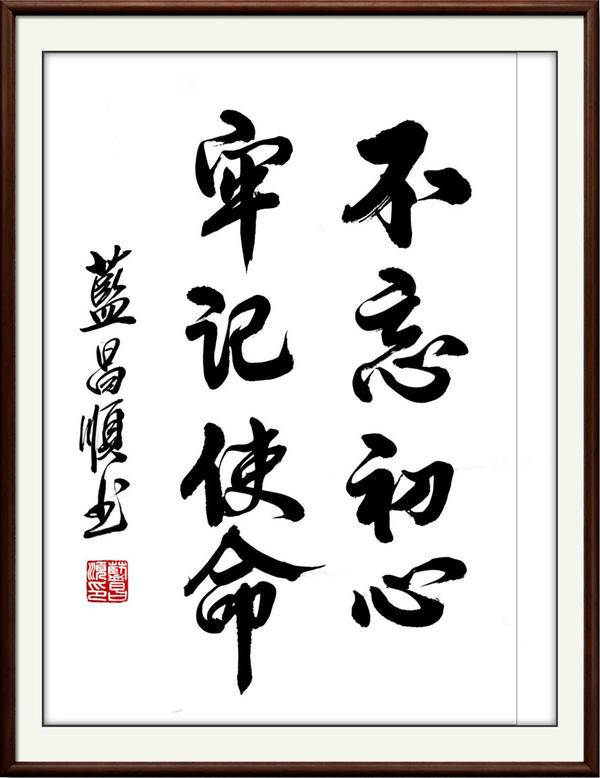 不忘初心
牢记使命
藍昌順书